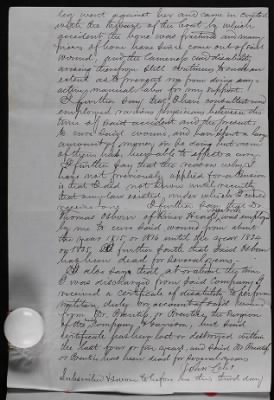 leg went against her and came in contact
with the of the boat by which
accident the bone was fractured and many
pieces of bone have since come out of said
wound, and the lameness and disability
arising therefrom still continues to such an
extent as to prevent me from doing any
active, manual labor for my support.
I further say that I have consulted and
employed various physicians between the
time of said accident and the present
to cure said wound, and have spent a large
amount of money in so doing but none
of them were able to effect a cure.
I further say that the reason why I
have not previously applied for a Pension
is that I did not know until recently
that any law existed under which I could
receive any. I further say that Dr
Thomas Osborn of River Head, was employed
by me to cure said wound from about
the year 1815 or 1816 until the year 1834
or 1835, further saith that said Osborn
has been dead for several years.
And also says that, at or about the time
I was discharged from said Company I
received a certificate of disability to perform
military duty on account of said wound
from Dr. or the Surgeon
of the Company, Garrison, but said
certificate has been lost or destroyed within
the last four or five years, and said Dr.
or has been dead for several years
John
Subscribed & sworn to before me this third day